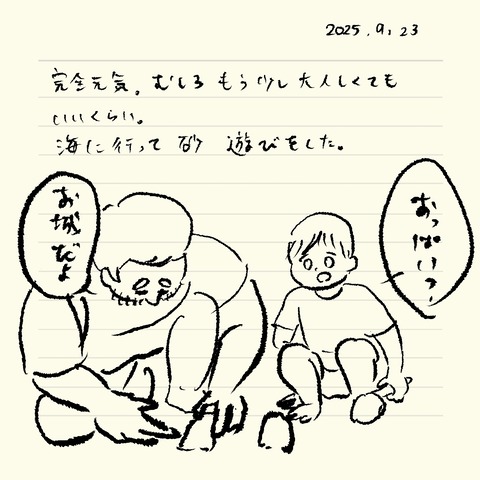 2025.9.23
完全元気。むしろ もう少し 大人しくても
いいくらい。
海に行って 砂 遊びをした。
お城だよ
おっぱいっ